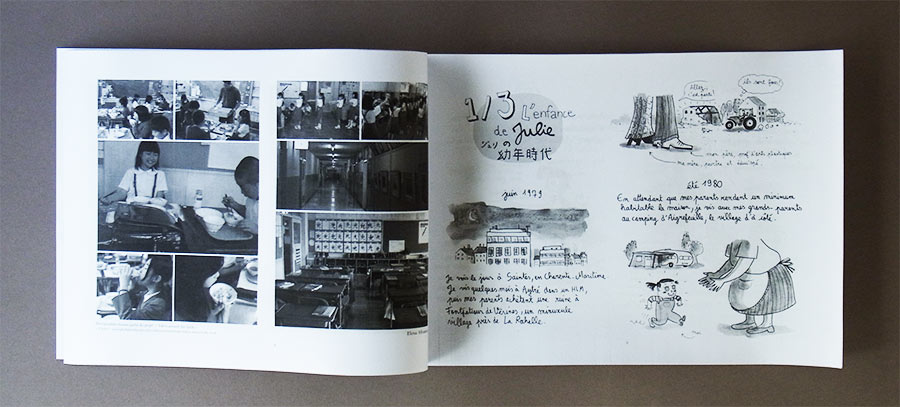 1/3 L'enfance
de Julie
ジュリの
幼年時代
juin 1979
Je vois le jour à Saintes, en Charente-Maritime.
Je vis quelques mois à Aytré dans un HLM,
puis mes parents achètent une ruine à
Fontpatour de Vérines, un minuscule
village près de La Rochelle.
Allez,
c'est parti!
Ils sont fous!
mon père, prof d'arts plastiques
ma mère, peintre et
été 1980
En attendant que mes parents rendent un minimum
habitable la maison, je vis avec mes grands-parents
au camping d'Aigrefeuille, le village d'à côté.